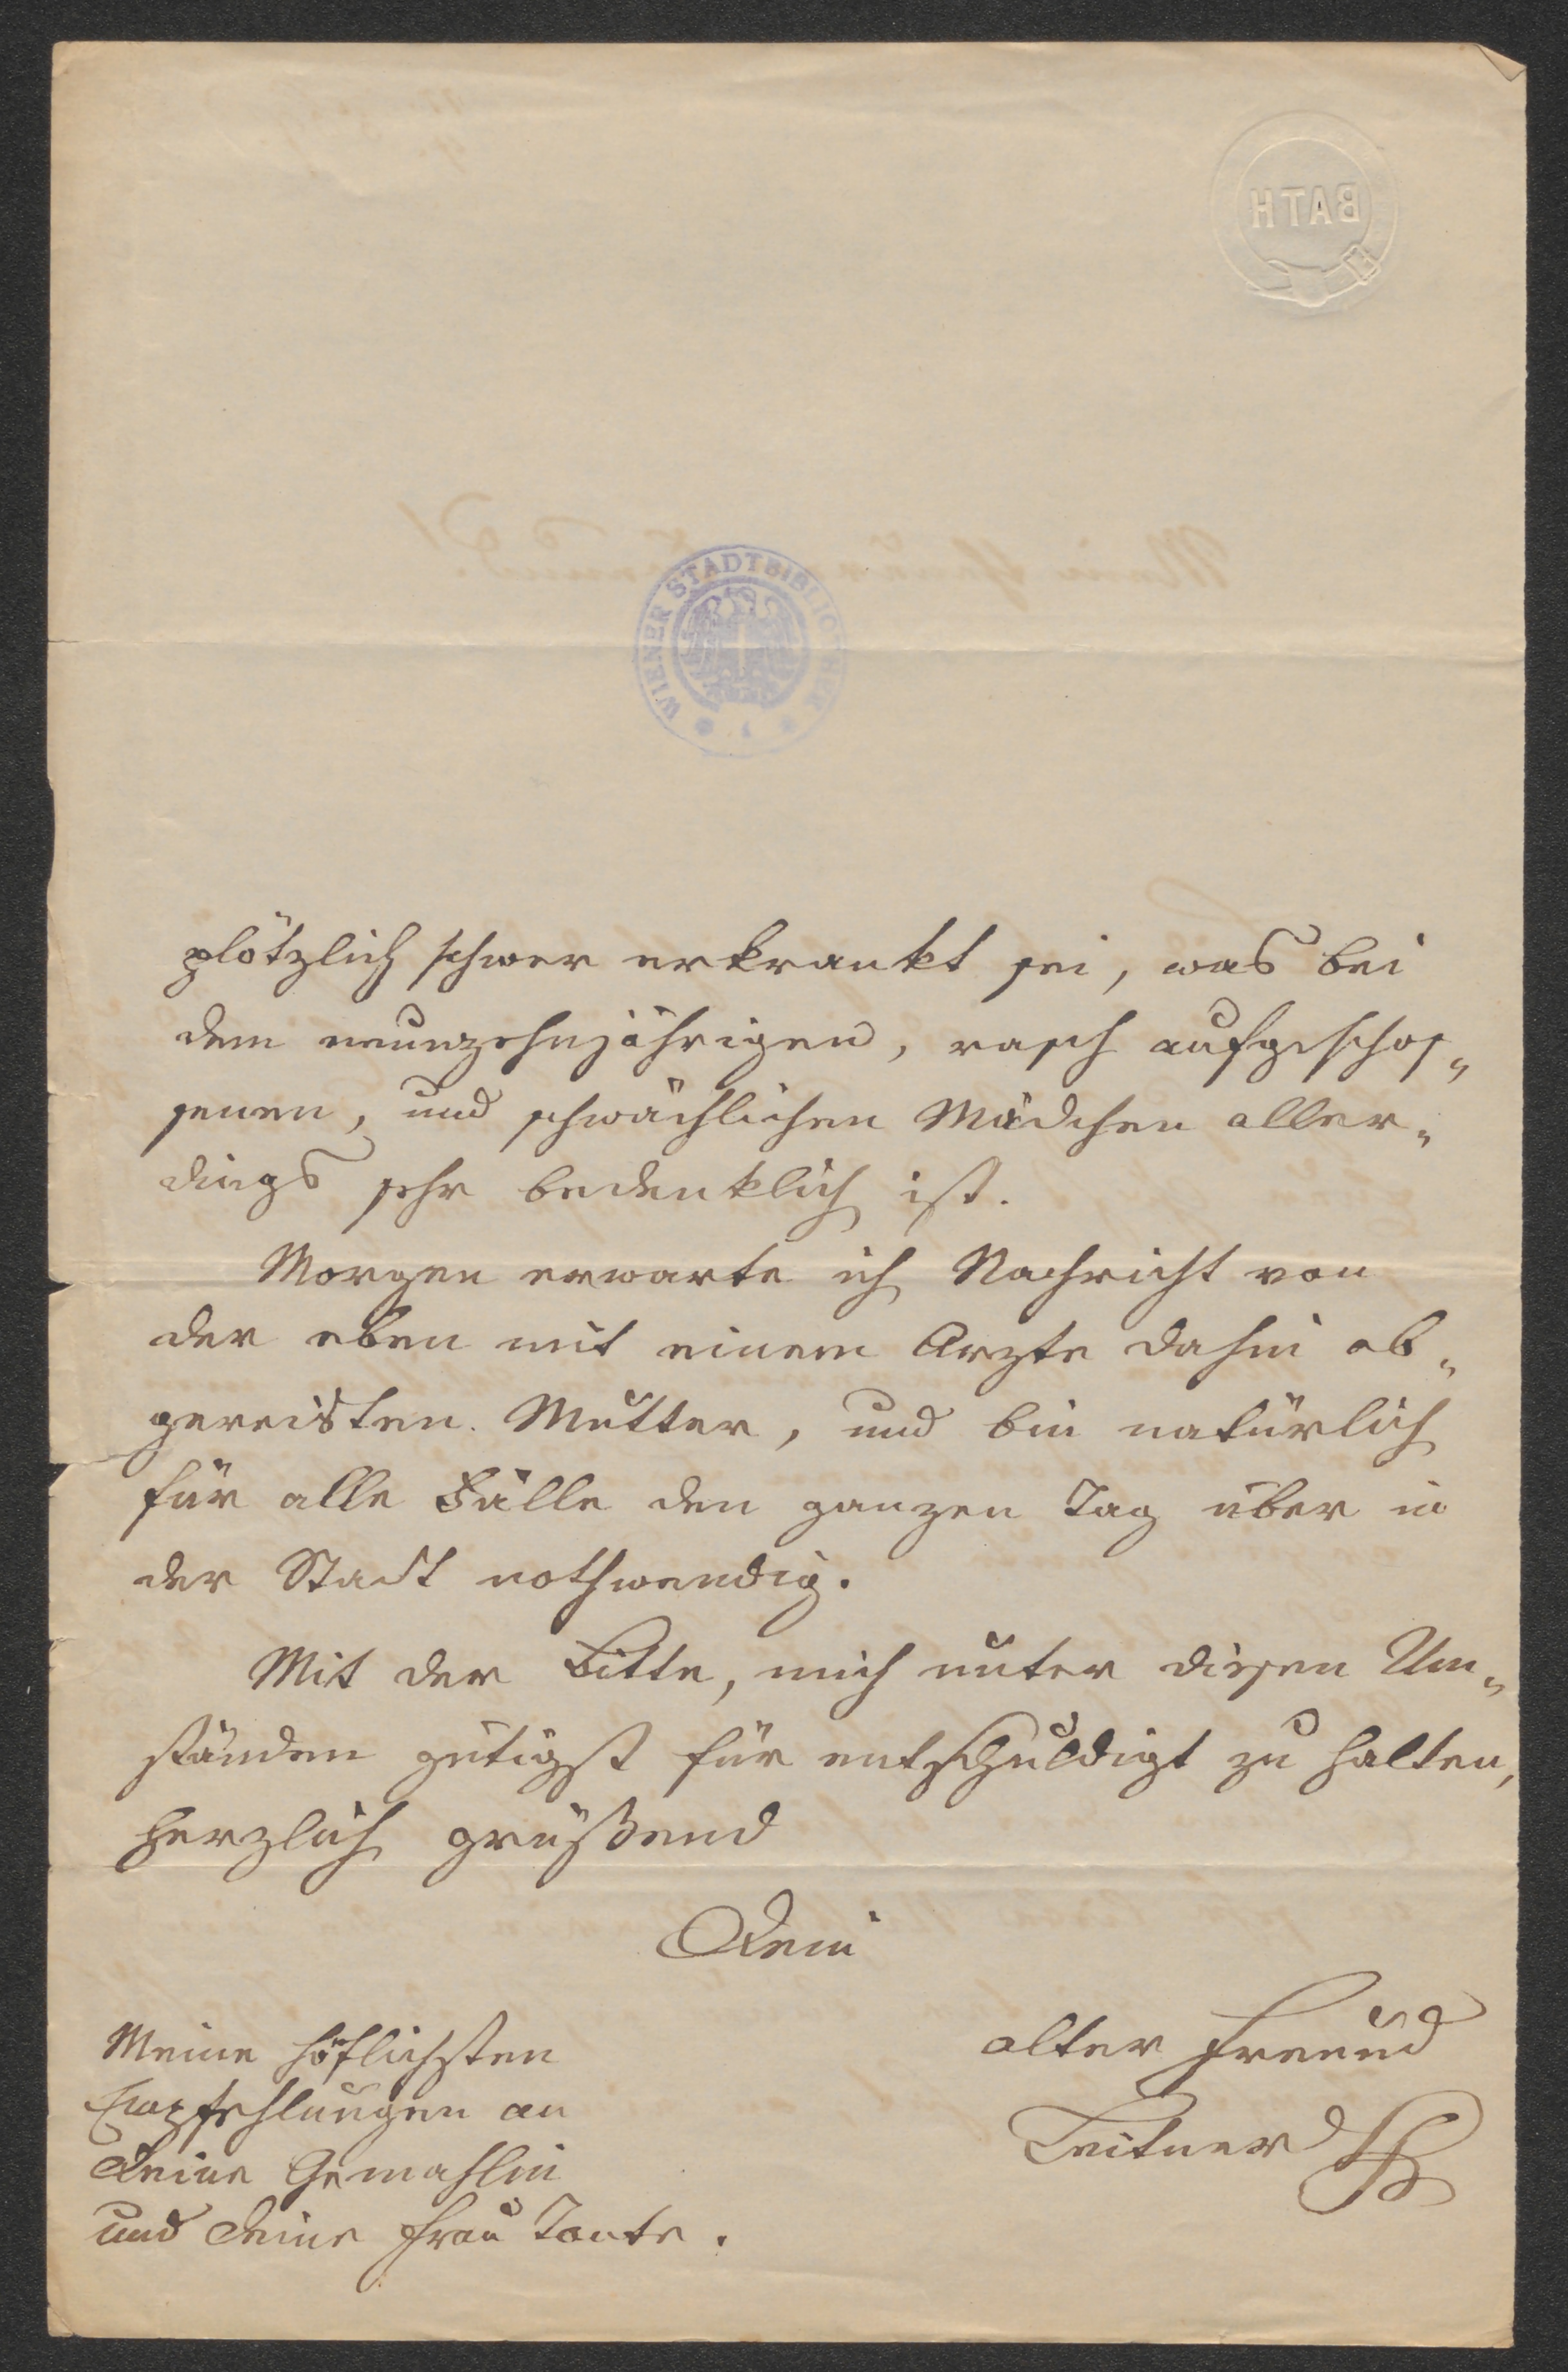 BATH
WIENER STADTBIBLIOTHEK
plötzlich schwer erkrankt sei, was bei
dem neunzehnjährigen, rasch aufgeschos-
senen, und schwächlichen Mädchen aller-
dings sehr bedenklich ist.
Morgen erwarte ich Nachricht von
der eben mit einem Arzte dahin ab-
gereisten Mutter, und bin natürlich
für alle Fälle den ganzen Tag über in
der Stadt nothwendig.
Mit der Bitte, mich unter diesen Um-
ständen gütigst für entschuldigt zu halten,
herzlich grüßend
Dein
alter Freund
Leitner
Meine höflichsten
Empfehlungen an
Deine Gemahlin
und Deine Frau Tante.